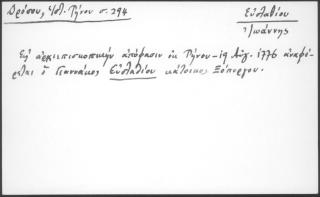 Δρόσου, Ἱστ. Τήνου σ. 294
Εὐσταθίου
Ἰωάννης
Εἰς ἀρχιεπισκοπικὴν ἀπόφασιν ἐκ Τήνου - 19 Αὐγ. 1776 ἀναφέ-
ρεται ὁ Γιαννάκος Εὐσταθίου κάτοικος Ξυπόργου.